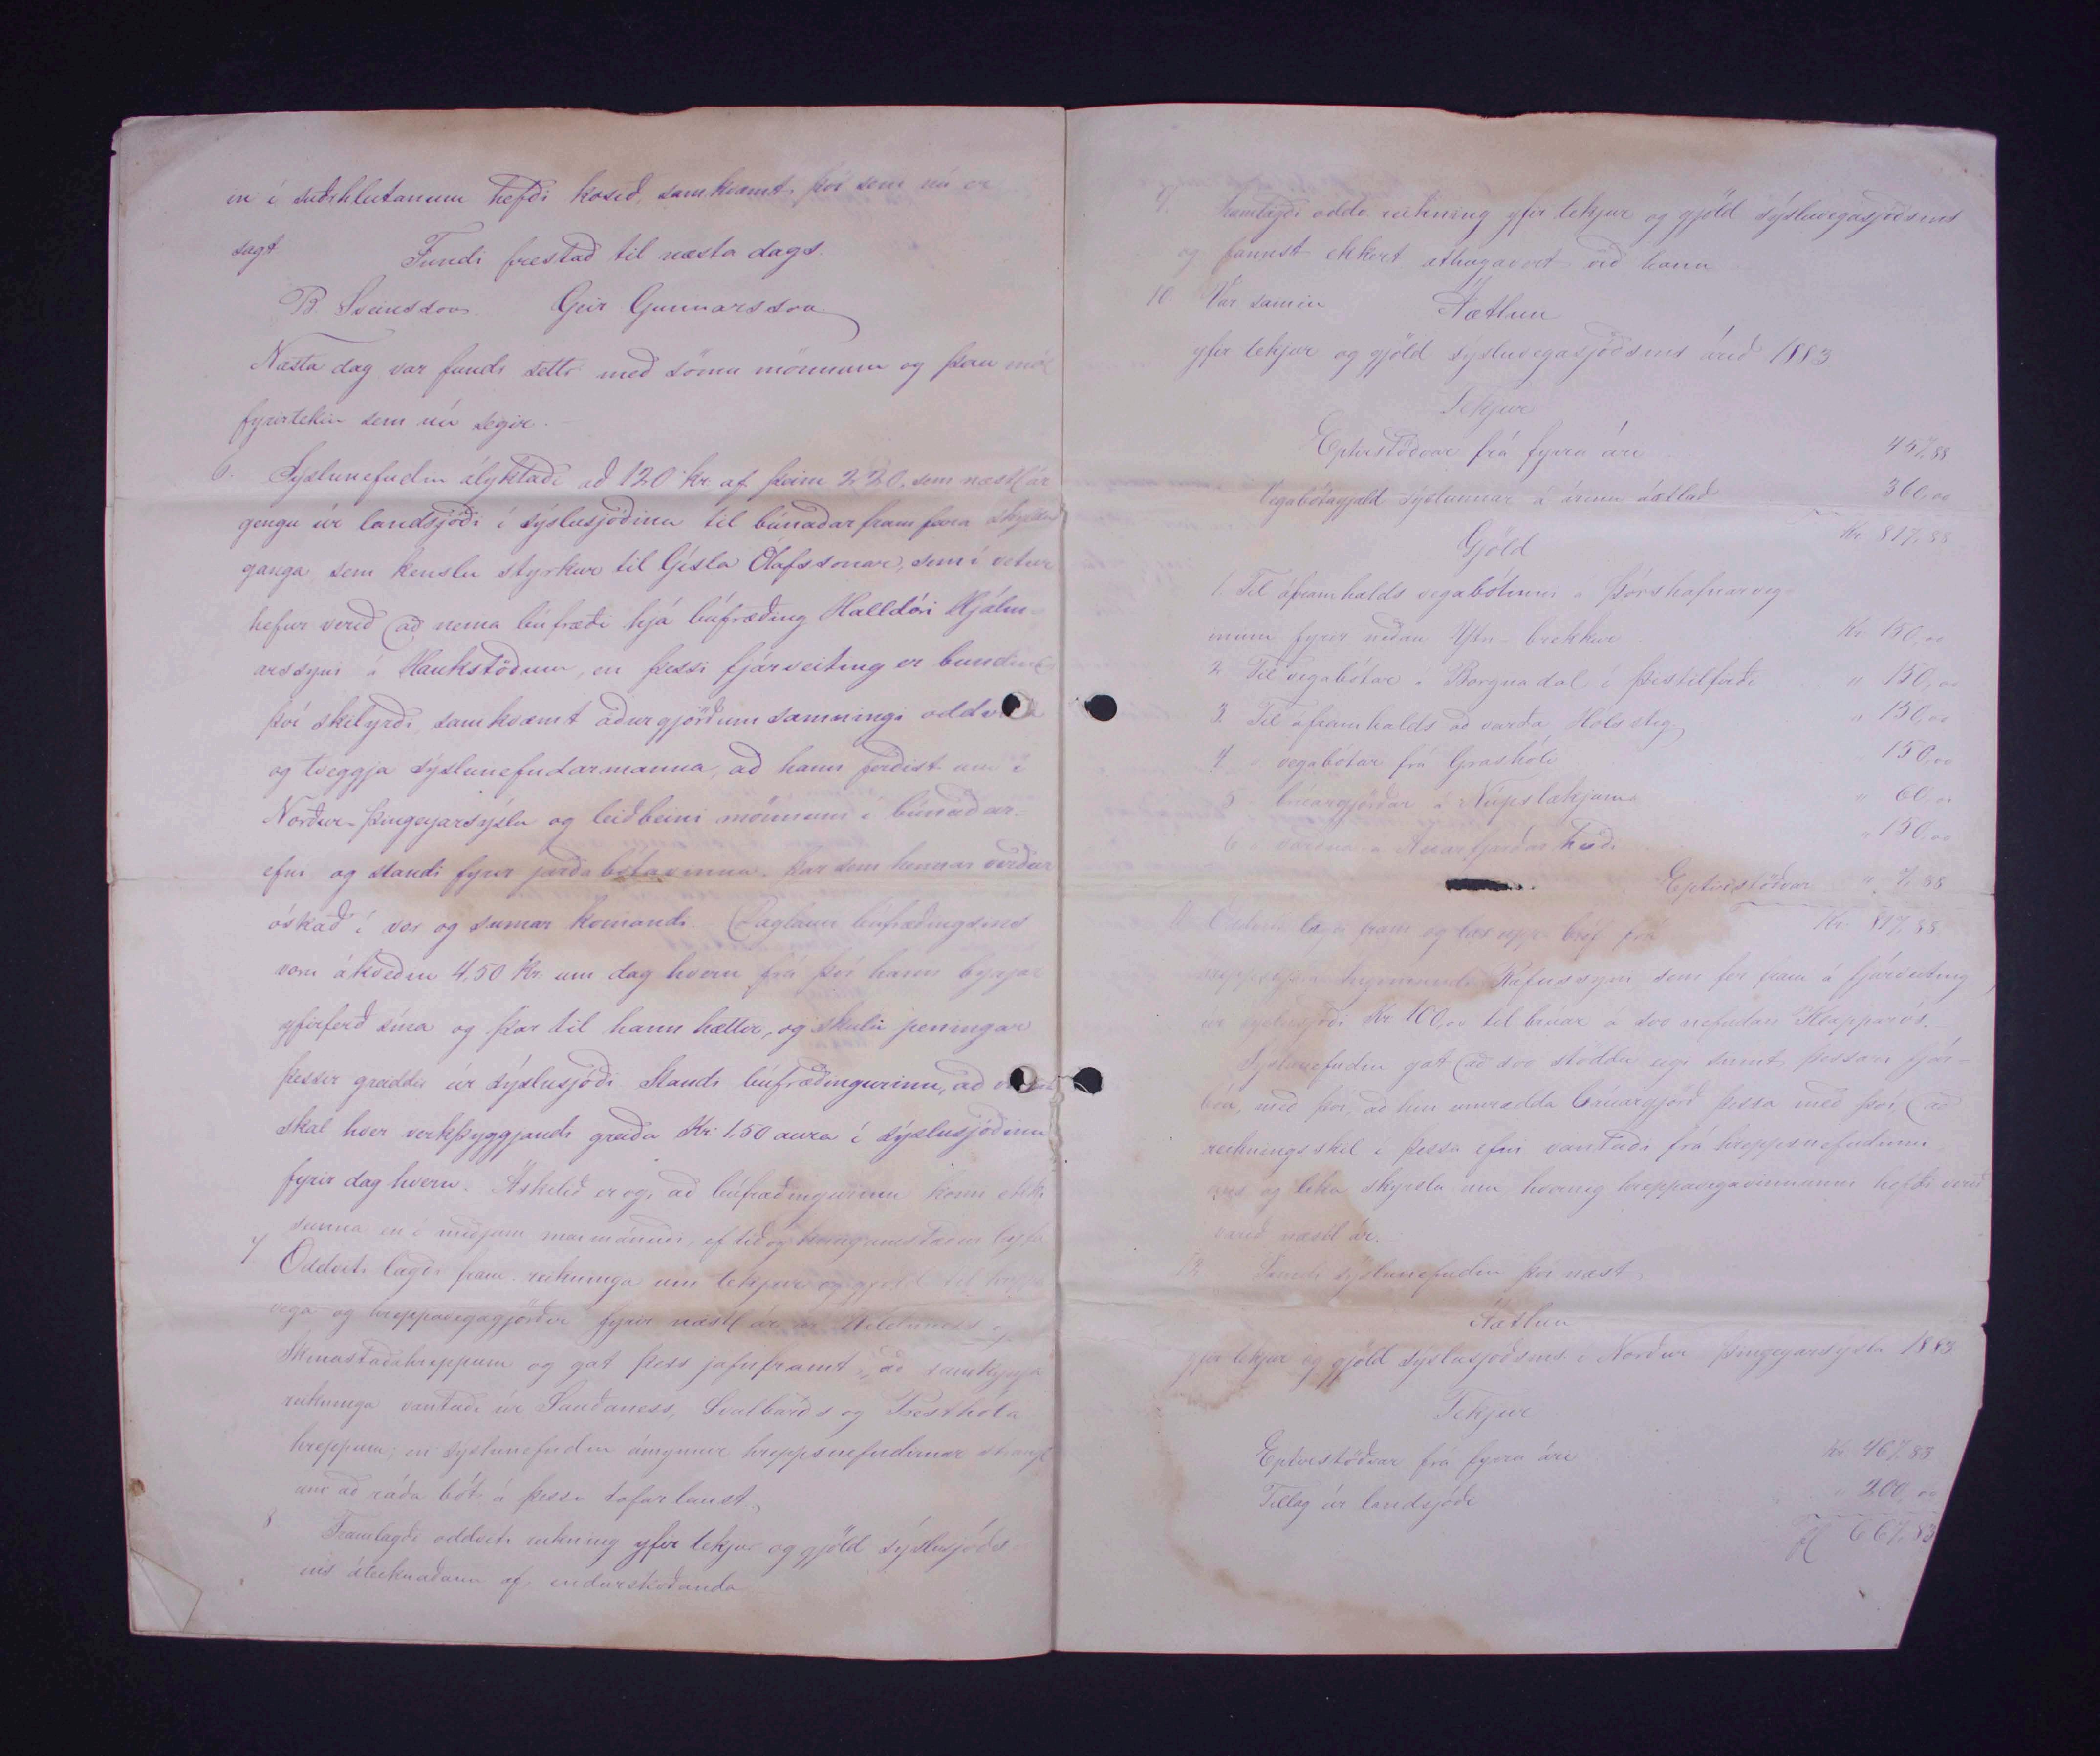 en í suðrhlutanum hefði kosið, samkvæmt því sem nú er
sagt.
Fundi frestað til næsta dags.
B Sveinsson Geir Gunnarsson
Næsta dag var fundi settr með sömu mönnum og þau mál
fyrirtekin sem nú segir.
6. Sýslunefndin ályktaði að 120 kr af þeim 220, som næstl ár
gengu úr landsjóði í sýslusjóðinn til búnaðar framfara skyldu
ganga sem kenslu styrkur til Gísla Ólafssonar, sem í vetur
hefur verið að nema búfræði hjá búfræðing Halldóri Hjálm-
arssyni á Haukstöðum, en þessi fjárveiting er bundin
því skilyrði, samkvæmt áðurgjörðum samningi oddvita
og tveggja sýslunefndarmanna, að hann ferðist um í
Norður-þingeyjarsýslu og leiðbeini mönnum í búnaðar-
efni og standi fyrir jarðabótavinnu þar sem hennar verður
óskað í vor og sumar komandi. Daglaun búfræðingsins
voru ákveðin 4,50 kr. um dag hvern frá því hann byrjar
yfirferð sína og þar til hann hættir, og skulu peningar
þessir greiddir úr sýslusjóði Standi búfræðingurinn, að
skal hver verkþyggjandi greiða Kr: 1,50 aura í sýslusjóðinn
fyrir dag hvern. Áskilið er og, að búfræðingurinn komi ekki
seinna en í miðjum maimánuði, ef tíð og kringumstæður leyfa
7. Oddviti lagði fram reikninga um tekjur og gjöld til
vega og hreppavegagjörðir fyrir næstl ár úr
Skinnastaðahreppum og gat þess jafnframt, að samkynja
reikninga vantaði úr Sauðaness, Svalbarðs og Presthóla
hreppum; en sýslunefndin áminnir hreppsnefndirnar
um að ráða bót á þessu tafarlaust.
8 Framlagði oddviti reikning yfir tekjur og gjöld sýslusjóðs-
ins áteiknaðann af endurskoðanda
9. Framlagði oddv. reikning yfir tekjur og gjöld sýsluvegasjóðsins
og fannst ekkert athugavert við hann
10. Var samin Áætlun
yfir tekjur og gjöld sýsluvegasjóðsins árið 1883
Tekjur
Eptirstöðvar frá fyrra ári 457,88
Vegabótagjald sýslunnar á árinu áætlað 360,00
Kr. 817,88
Gjöld
1. Til áframhalds vegabótinni á Þórshafnarveg-
inum fyrir neðan Ytri-brekkur Kr 150,00
2. Til vegabótar á Borgnadal í Þistilfirði " 150,00
3. Til áframhalds að varða Hólsstíg " 150,00
4. " vegabótar frá Grashóli " 150,00
5 brúargjörðar á Núpslækjum " 60,00
6 " varðna á Axarfjarðarheiði " 150,00
Eptirstöðvar " 7,88
Kr. 817,88.
11. Oddviti lagði fram og las upp bréf frá
Rafnssyni sem fer fram á fjárveiting
úr sýslusjóði Kr 100,00 til brúar á svo nefndan Klapparós.
Sýslunefndin gat að svo stöddu eigi sinnt þessari fjár-
bón, með því, að hún umrædda brúargjörð þessa með því, að
reikningsskil í þessu efni vantaði frá hreppsnefndinni
og líka skýrslu um hvernig hreppavegavinnunni hefði verið
varið næstl ár.
12. Samdi sýslunefndin því næst
Áætlun
yfir tekjur og gjöld sýslusjóðsins í Norður þingeyjarsýslu 1883
Tekjur
Eptirstöðvar frá fyrra ári Kr. 467,83
Tillag úr landsjóði " 200,00
667,83